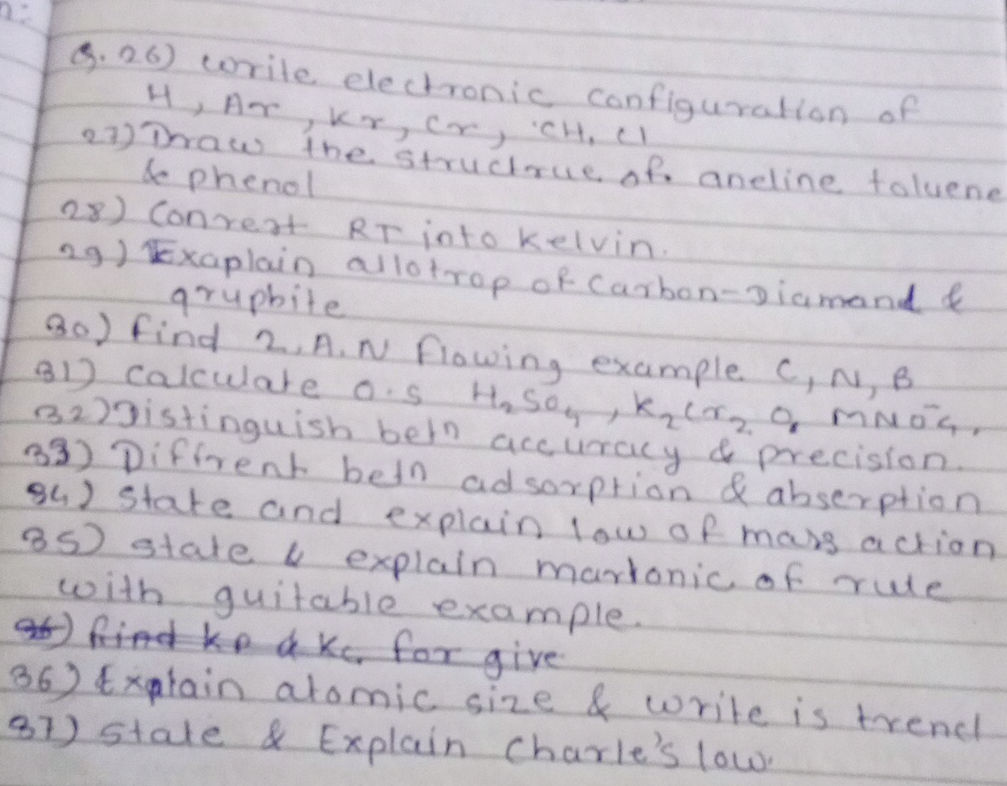 Q.26) Write electronic configuration of
H, Ar, Kr, Cr, CH, Cl
27) Draw the structrue of aneline toluene
& phenol
28) Convert RT into Kelvin.
29) Exaplain allotrop of Carbon-Diamand &
gruphite
30) find Z, A, N flowing example C, N, B
31) Calculate O.S H₂SO₄, K₂Cr₂O₇ MNO⁻₄,
32) Distinguish betn accuracy & precision.
33) Diffrent betn adsorption & abserption
34) State and explain low of mass action
35) state & explain martonic of rule
with suitable example.
36) find kp & Kc for give
36) Explain atomic size & write is trend
37) State & Explain Charle's low